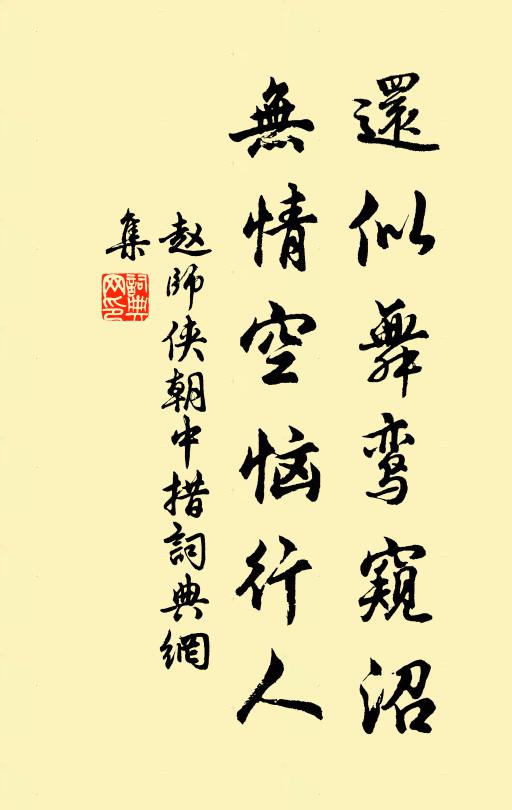 還似舞鸾窺沼
無情空恼行人
赵師侠朝中措詞典網
集
詞典网印